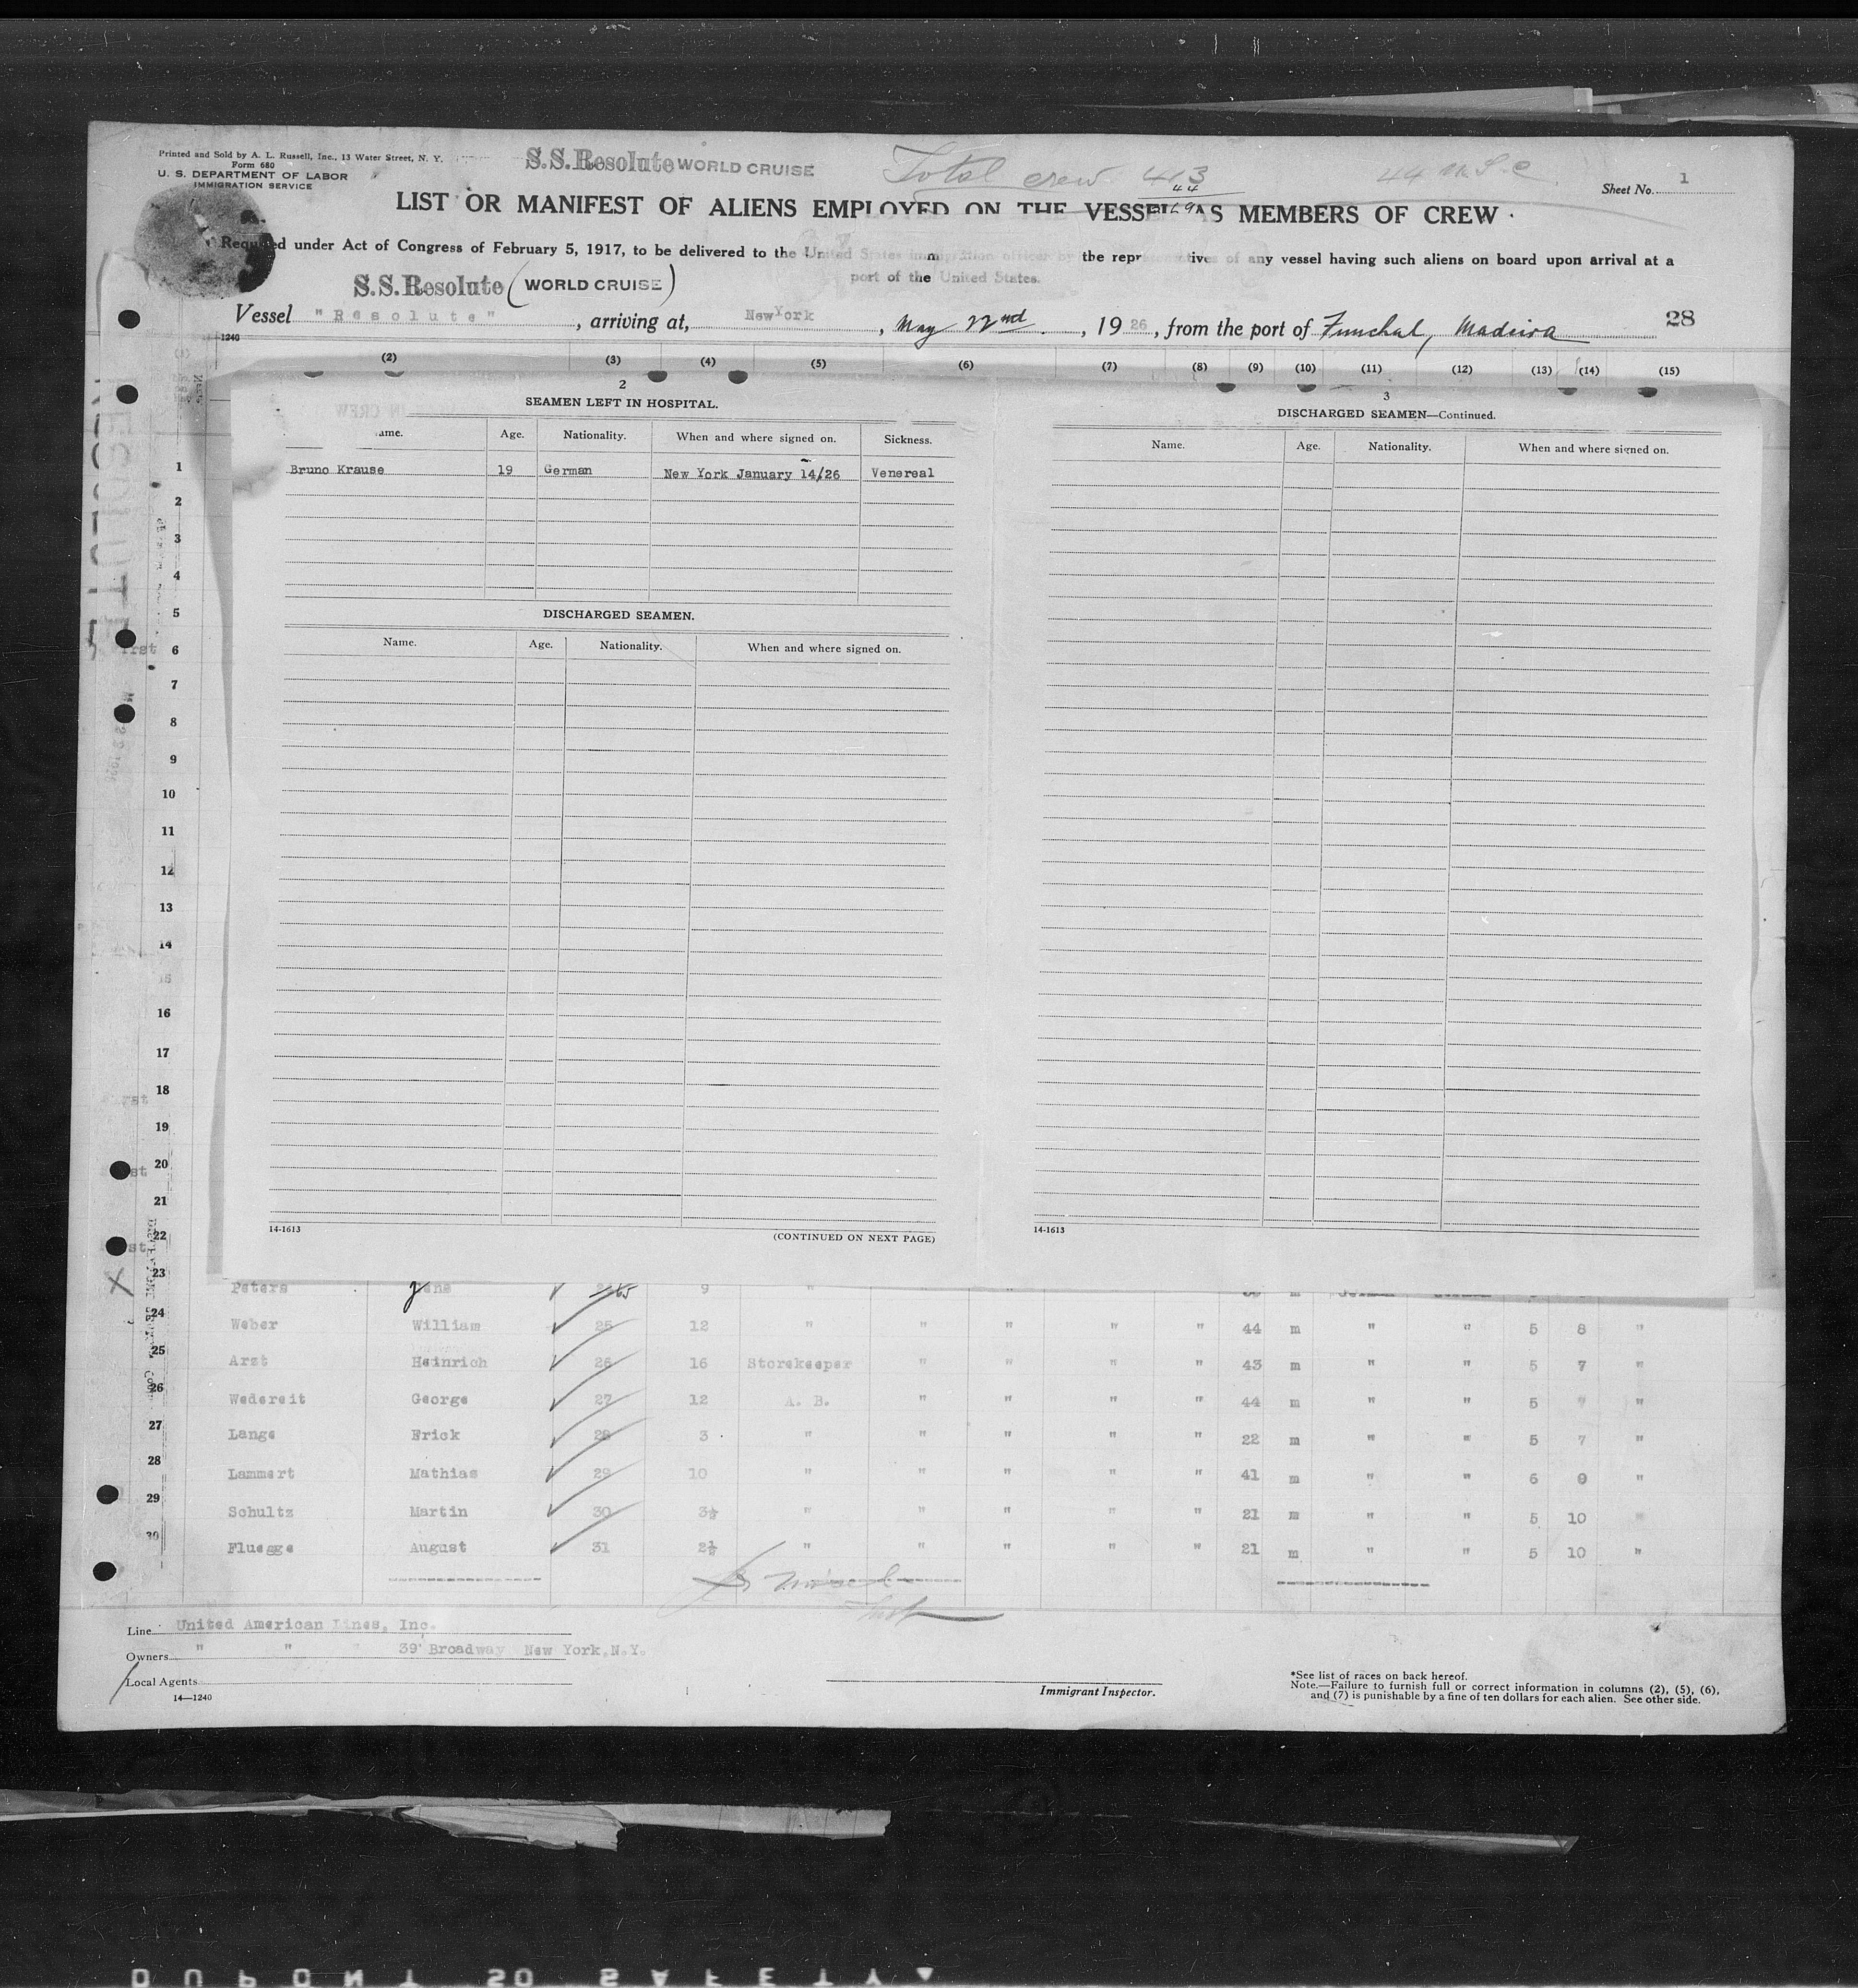 Printed and Sold by A. L. Russell, Inc., 13 Water Street, N. Y.
Form 680
U. S. DEPARTMENT OF LABOR
IMMIGRATION SERVICE
S.S.Resolute WORLD CRUISE
Total crew 413
44
44 m.S.C
Sheet No. 1
LIST OR MANIFEST OF ALIENS EMPLOYED ON THE VESSEL AS MEMBERS OF CREW
Required under Act of Congress of February 5, 1917, to be delivered to the United States immigration officer by the representatives of any vessel having such aliens on board upon arrival at a
port of the United States.
S.S.Resolute (WORLD CRUISE)
Vessel "Resolute", arriving at, New York, May 22nd, 1926, from the port of Funchal, Madeira
28
1240
(2) (3) (4) (5) (6) (7) (8) (9) (10) (11) (12) (13) (14) (15)
2
SEAMEN LEFT IN HOSPITAL.
Age. Nationality. When and where signed on. Sickness.
Bruno Krause 19 German New York January 14/26 Venereal
DISCHARGED SEAMEN.
Name. Age. Nationality. When and where signed on.
14-1613
(CONTINUED ON NEXT PAGE)
3
DISCHARGED SEAMEN—Continued.
Name. Age. Nationality. When and where signed on.
14-1613
1
2
3
4
5
6
7
8
9
10
11
12
13
14
16
17
18
19
20
21
22
23
24
25
26
27
28
29
30
Peters Jens 9 "
Weber William 25 12 " " " " " 44 m " " 5 8 "
Arzt Heinrich 26 16 Storekeeper " " " " 43 m " " 5 7 "
Wedereit George 27 12 A. B. " " " " 44 m " " 5 " "
Lange Erick 28 3 " " " " " 22 m " " 5 7 "
Lammert Mathias 29 10 " " " " " 41 m " " 6 0 "
Schultz Martin 30 3½ " " " " " 21 m " " 5 10 "
Fluegge August 31 2½ " " " " " 21 m " " 5 10 "
Line United American Lines, Inc.
Owners " " " 39 Broadway New York, N.Y.
Local Agents
14—1240
Immigrant Inspector.
*See list of races on back hereof.
Note.—Failure to furnish full or correct information in columns (2), (5), (6),
and (7) is punishable by a fine of ten dollars for each alien. See other side.
DUPONT SO SAFETY